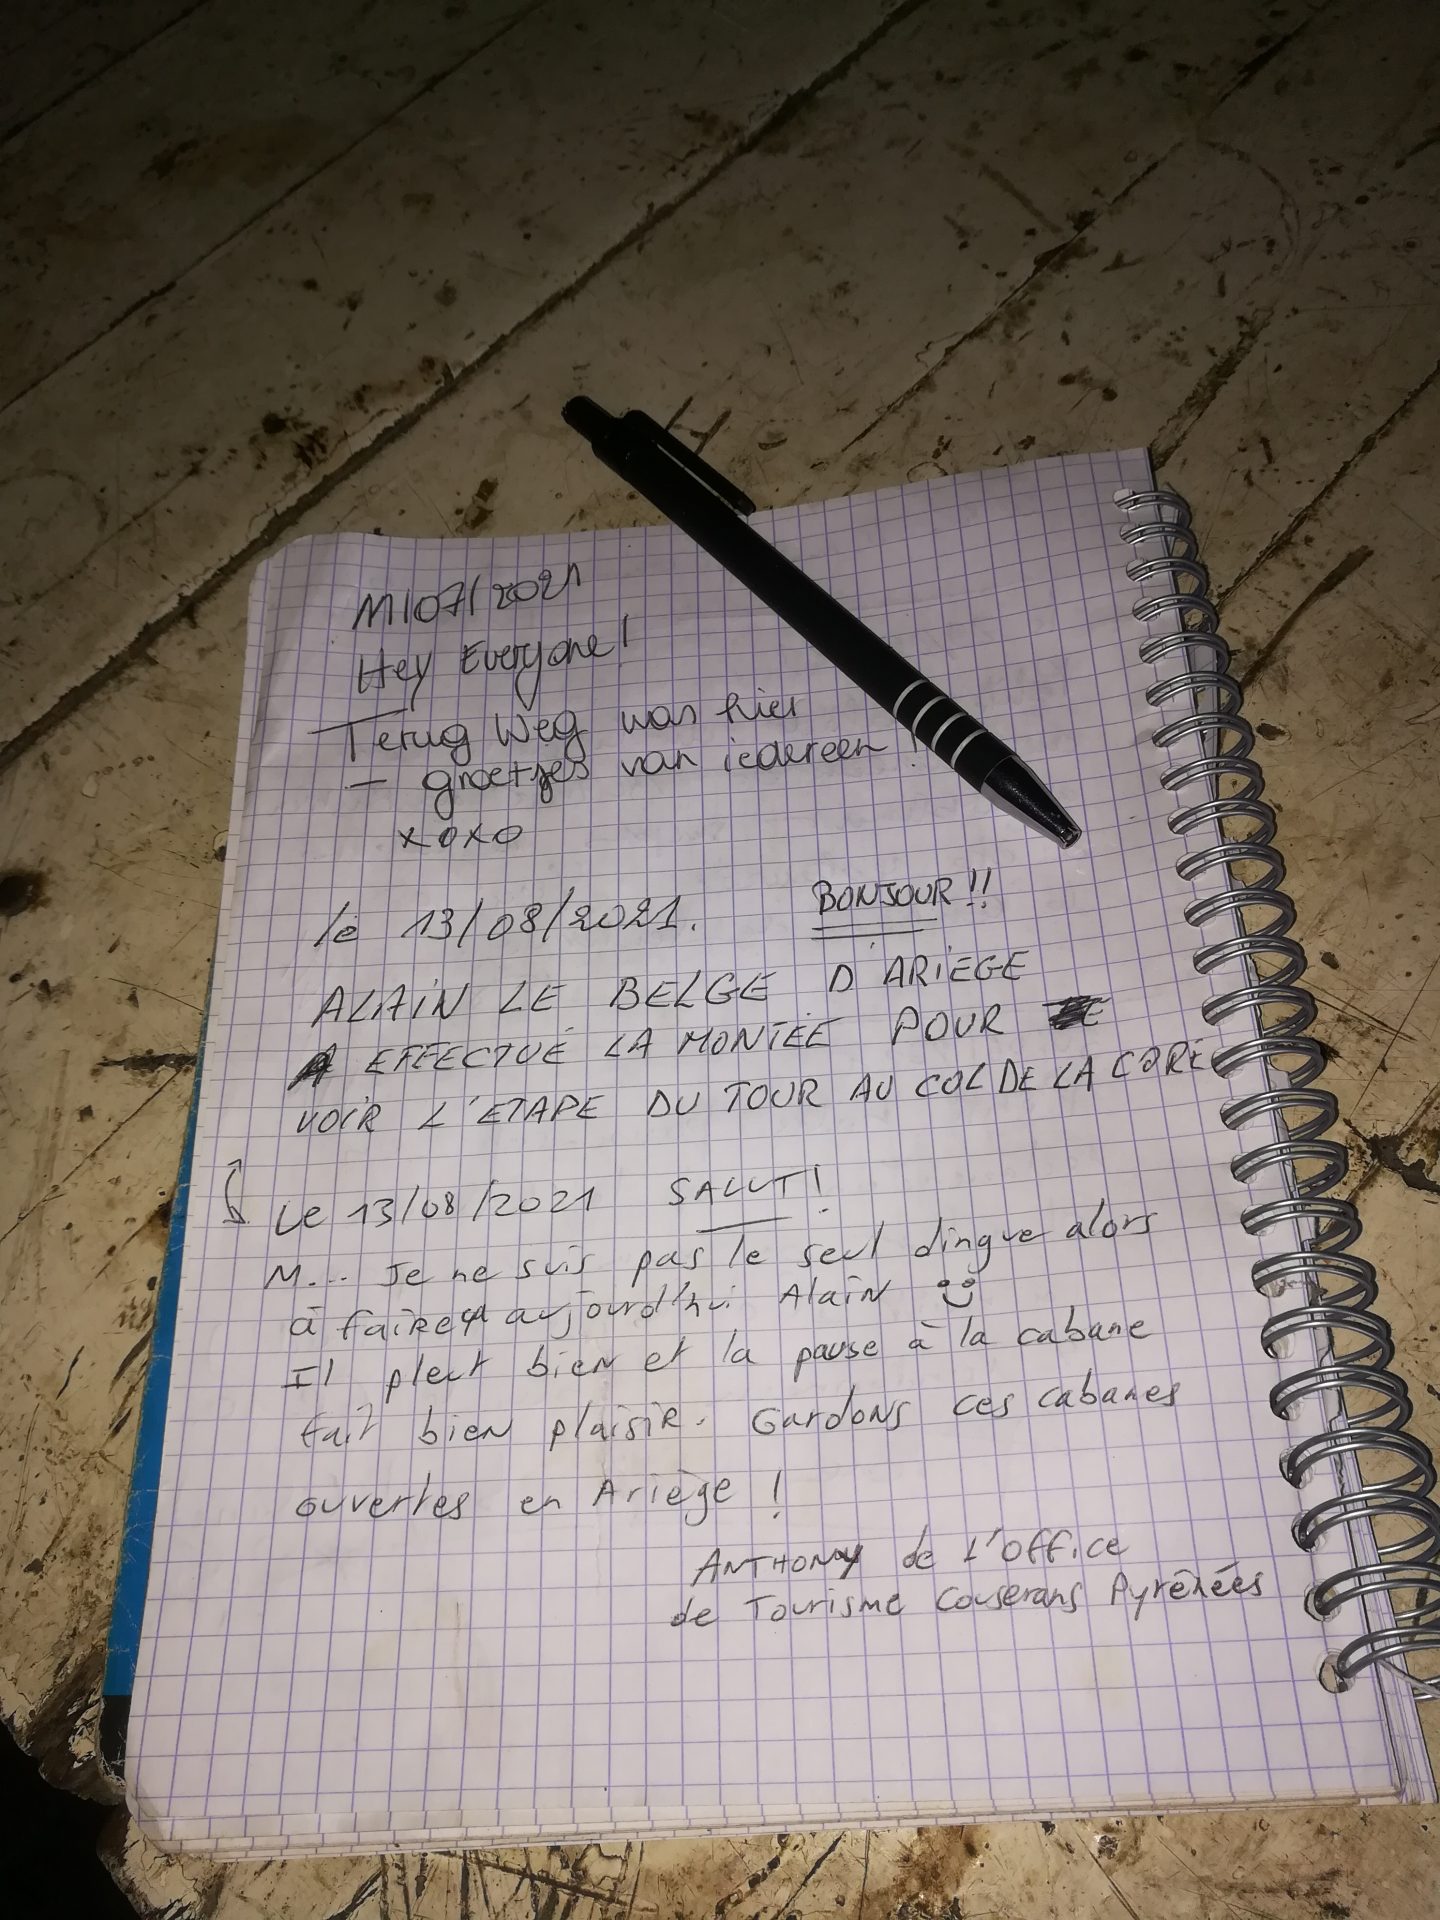 11/07/2021
Hey Everyone!
Terug Weg was hier
- groetjes van iedereen!
xoxo
le 13/08/2021. BONJOUR!!
ALAIN LE BELGE D'ARIEGE
A EFFECTUÉ LA MONTÉE POUR
VOIR L'ETAPE DU TOUR AU COL DE LA CORE
Le 13/08/2021 SALUT!
M... Je ne suis pas le seul dingue alors
à faire ça aujourd'hui Alain
Il pleut bien et la pause à la cabane
fait bien plaisir. Gardons ces cabanes
ouvertes en Ariège !
ANTHONY de L'Office
de Tourisme Couserans Pyrénées